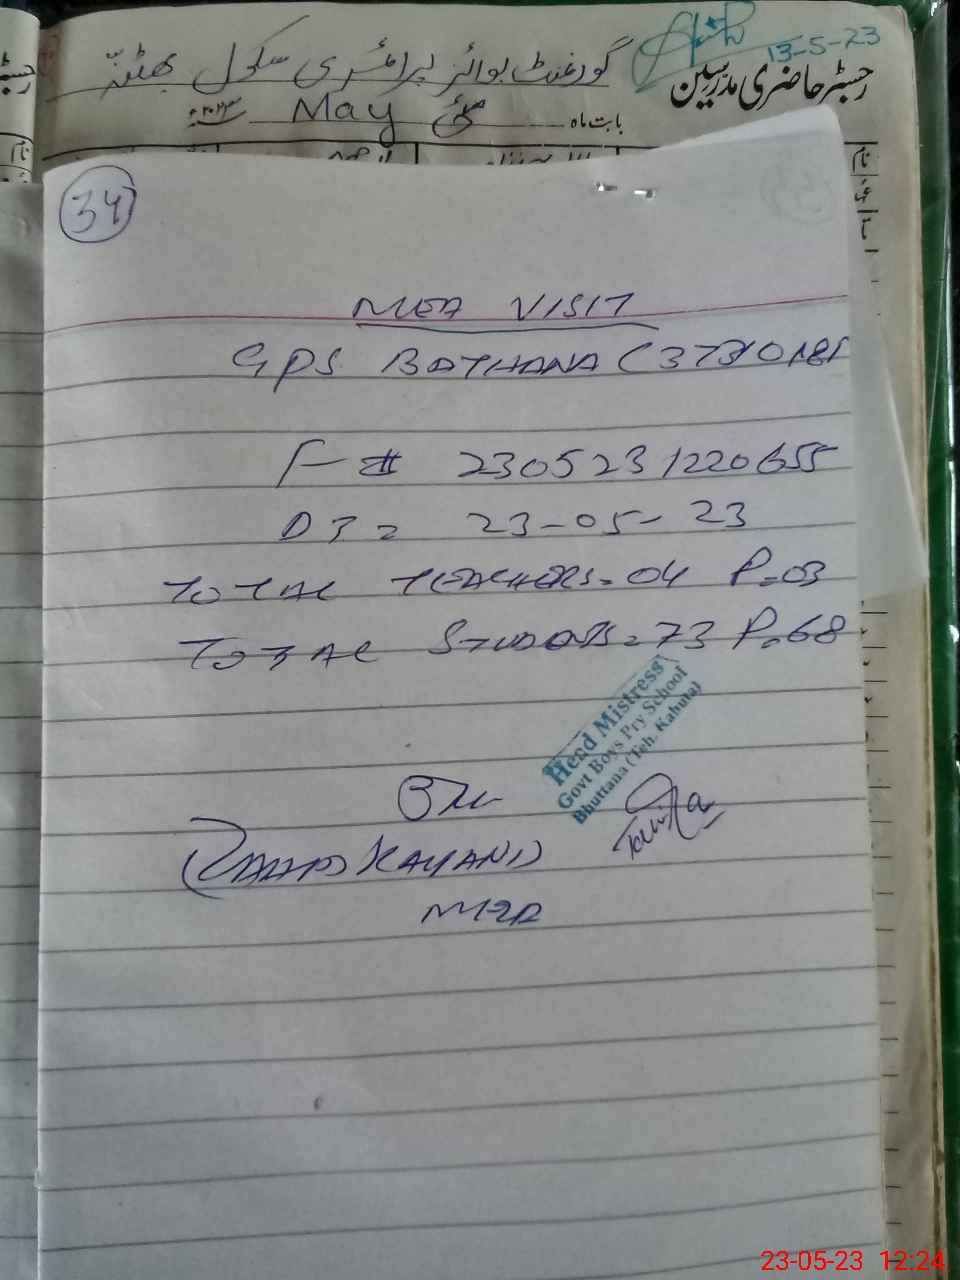 13-5-23
گورنمنٹ بوائز پرائمری سکول بھٹنہ
رجسٹر حاضری مدرسین
بابت ماہ مئی May ۲۰۲۳ء
34
MEA VISIT
GPS BOTHANA (37310181
F # 2305231220655
DT = 23-05-23
TOTAL TEACHERS = 04 P=03
TOTAL STUDENTS = 73 P=68
Head Mistress
Govt Boys Pry School
Bhuttana (Teh. Kahuta)
KAYANI)
MEA
23-05-23 12:24